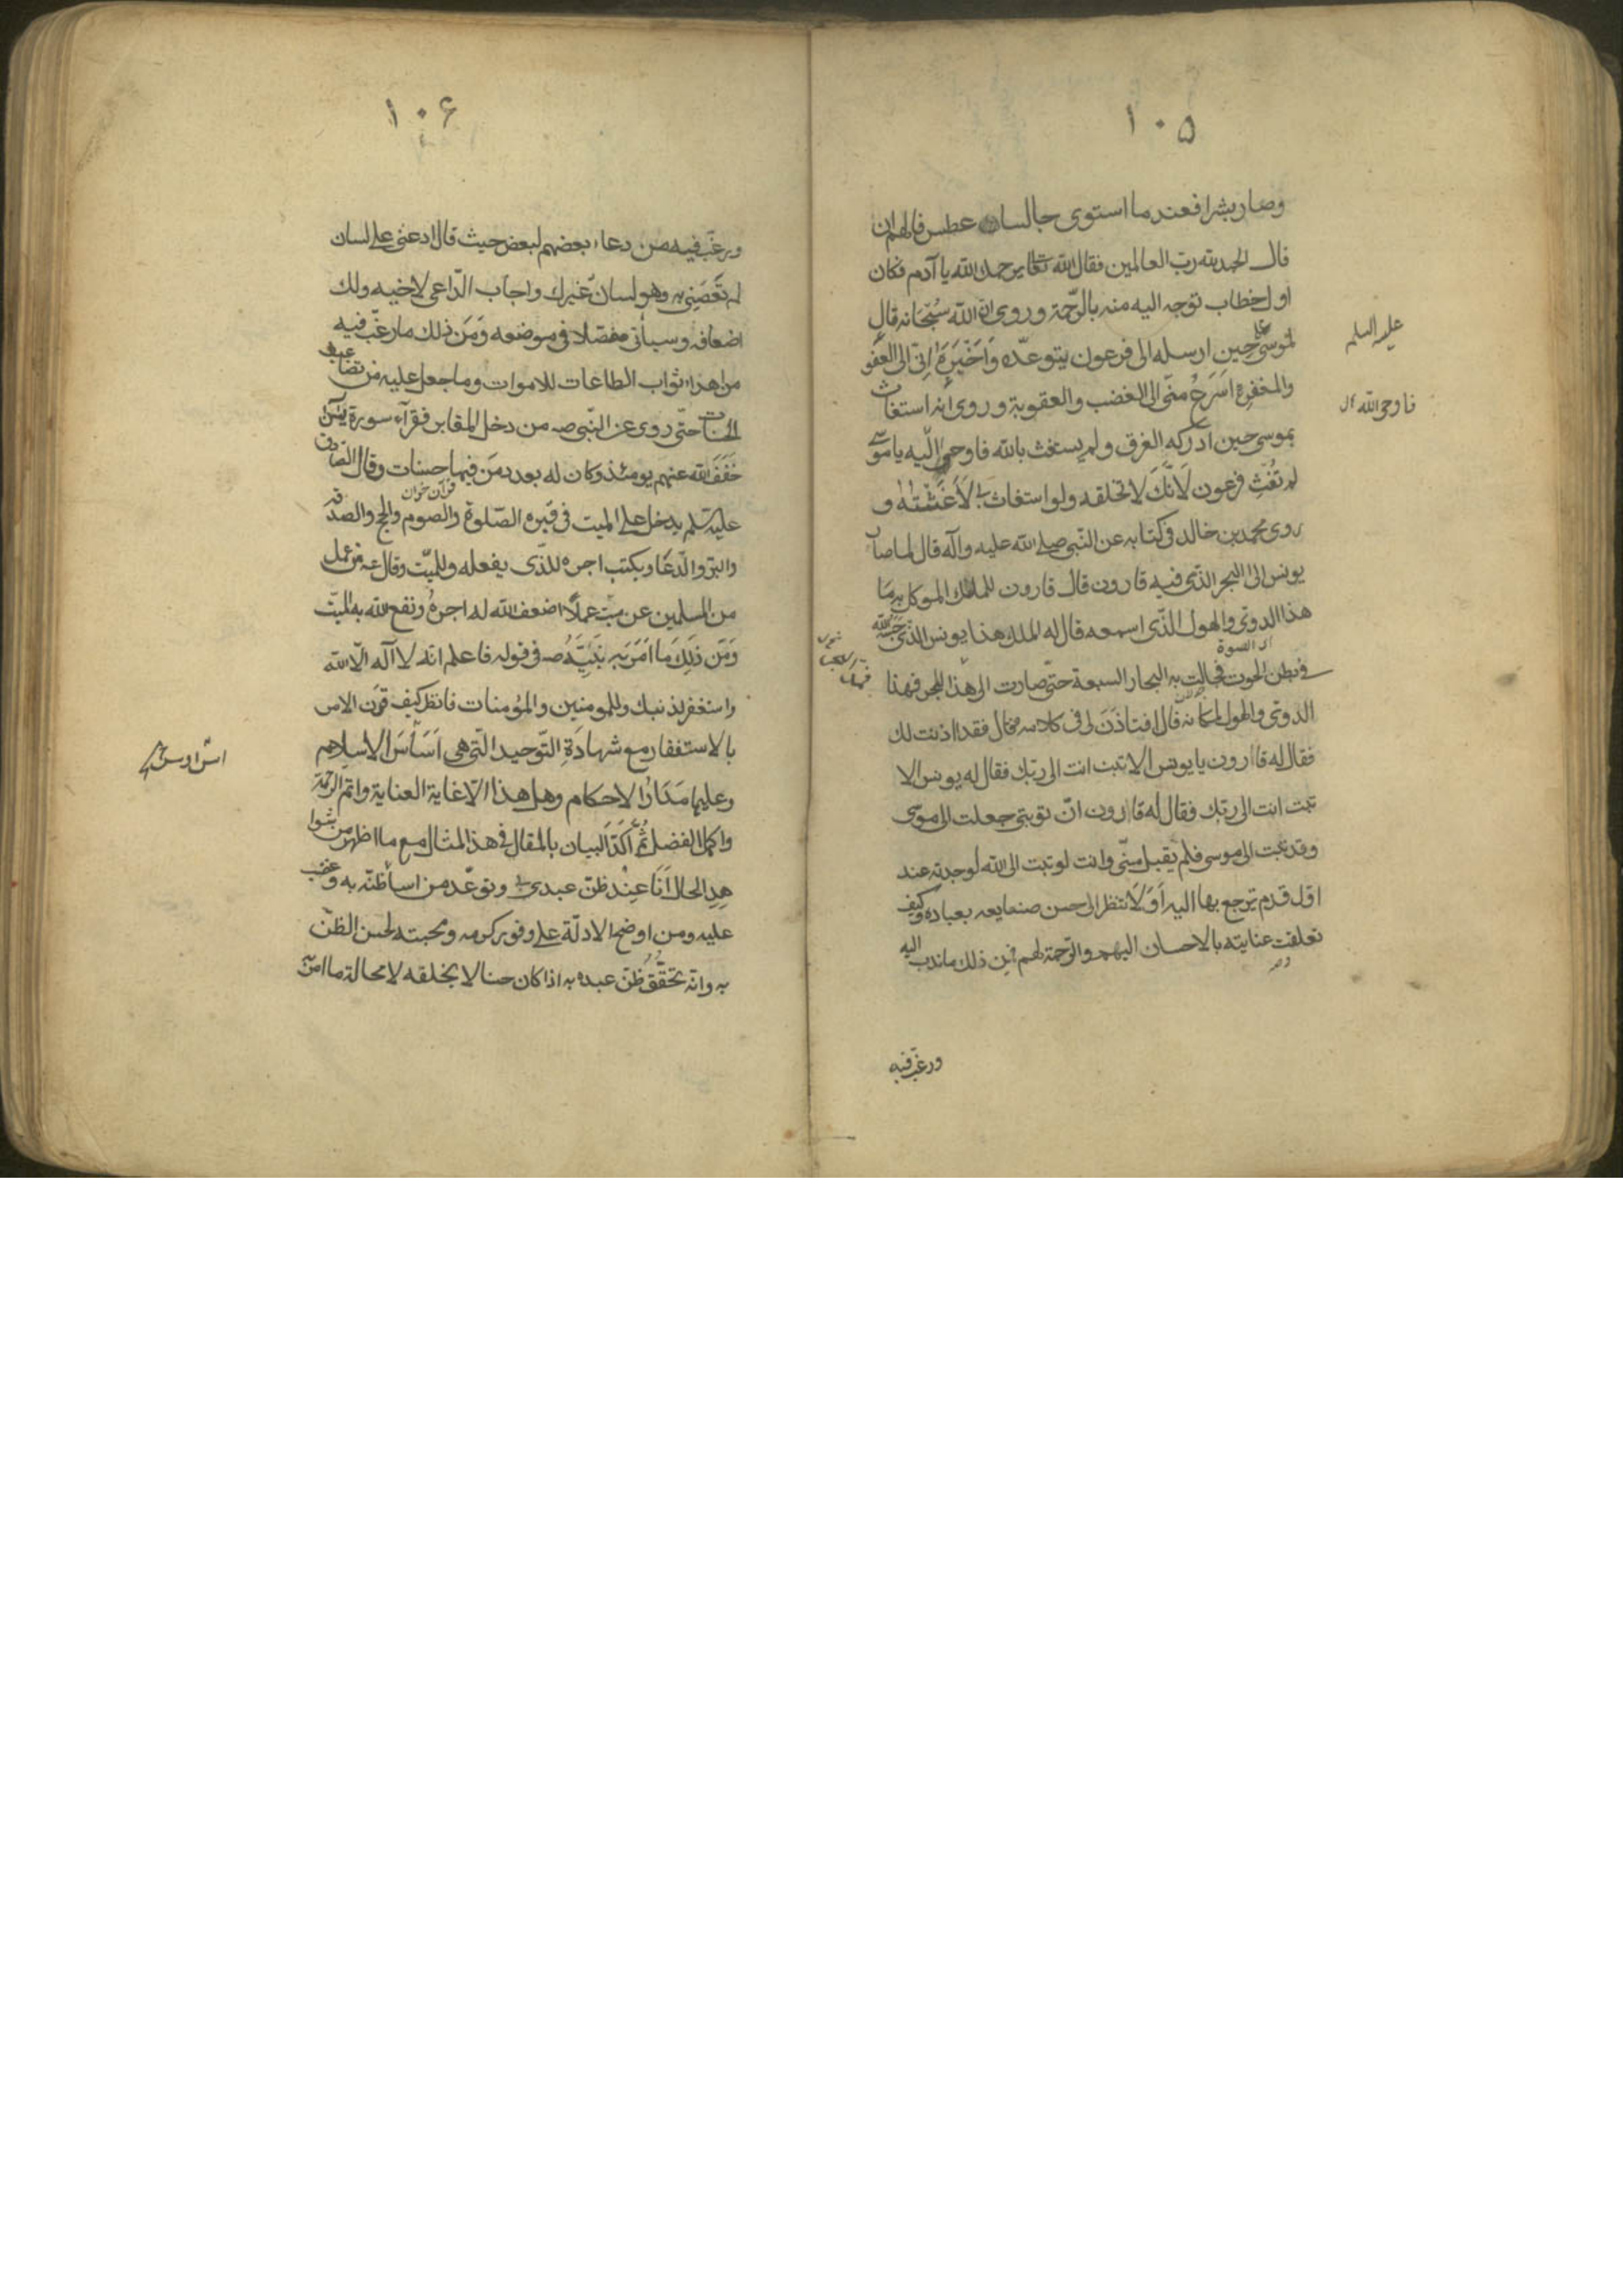 ١٠۵
وصار بشرا فعندما استوى جالسا عطس فالهم ان
قال الحمد لله رب العالمين فقال الله تعالى يرحمك الله يا آدم فكان
اول خطاب توجه اليه منه بالرّحمة وروى ان الله سُبْحَانه قال
لموسى حين ارسله الى فرعون يتوعّده وَاَخْبِرهُ اِنّى الى العَفْو
عليه السلم
والمغفرة اَسْرَعُ منّى الى الغضب والعقوبة وروى انه استغاث
فاوحى الله
بموسى حين ادركه الغرق ولم يستغث بالله فاوحى اليه يا موسى
لم تُغِثْ فرعون لَانّكَ لا تخلقه ولو استغاث بى لَأَغَثْتُهُ و
روى محمد بن خالد فى كتابه عن النّبى صلى الله عليه وآله قال لما صار
يونس الى البحر الذى فيه قارون قال قارون للملك الموكل به مَا
هذا الدوىّ والهول الذّى اسمعه قال له الملك هذا يونس الذى حبسه الله
فى بطن الحوت فجالت به البحار السبعة حتّى صارت الى هذا البحر فهذا
الدوىّ والهول لمكانه قال افتاذَنَ لى فى كلامه فقال قد اذنت لك
فقال له قارون يا يونس الا تبت انت الى ربّك فقال له يونس الا
تبت انت الى ربّك فقال له قارون انّ توبتى جعلت الى موسى
وقد تبت الى موسى فلم يقبل منّى وانت لو تبت الى الله لوجدته عند
اوّل قدم ترجع بها اليه اَوَلَا تنظر الى حسن صنايعه بعباده وكيف
تعلقت عنايته بالاحسان اليهم والرّحمة لهم فمن ذلك ما ندب اليه
ورغّب فيه
١٠۶
ورغّب فيه من دعاء بعضهم لبعض حيث قال ادعنى على لسان
لم تَعْصِنِى به وهو لسان غيرك واجاب الدّاعى لاخيه ولك
اضعافه وسيأتى مفصّلا فى موضعه وَمِن ذلك ما رغّب فيه
من اهداء ثواب الطاعات للاموات وما جعل عليه من تضاعيف
الحسنات حتّى روى عن النّبى صه من دخل المقابر فقرأ سورة يس
خَفَّفَ الله عنهم يومئذ وكان له بعدد مَن فيها حسنات وقال الصّادق
قرآن خوان
عليه السلم يدخل على الميت فى قبره الصّلوة والصوم والحج والصدقة
والبرّ والدّعا ويكتب اجره للذّى يفعله وللميّت وقال عه من عمل
من المسلمين عن ميّت عملًا اضعف الله له اجرهُ ونفع الله به الميّت
وَمِن ذَلِكَ مَا اَمَرَ بَه نَبِيَّهُ صه فى قوله فاعلم انه لا آله الّا الله
واستغفر لذنبك وللمومنين والمؤمنات فانظر كيف قَرن الامر
بالاستغفار مع شهادَةِ التّوحيد الّتى هى اَسَاسَ الاسلام
وعليها مَدَارُ الاحكام وهل هذا الّا غاية العناية واتم الرحمة
واكمل الفضل ثُمَّ اَكَّدَ البيان بالمقال فى هذا المثال مع ما اظهر من شوا
هِدِ الحال اَنَا عِنْد ظنّ عبدى بى وتوعّد من اسا ظنّه به وغضب
عليه ومن اوضح الادلّة على وفور كرمه ومحبته لحسن الظنّ
به وانّه تحقّقُ ظنّ عبده به اذا كان حسنا لا يخلفه لا محالة ما امن